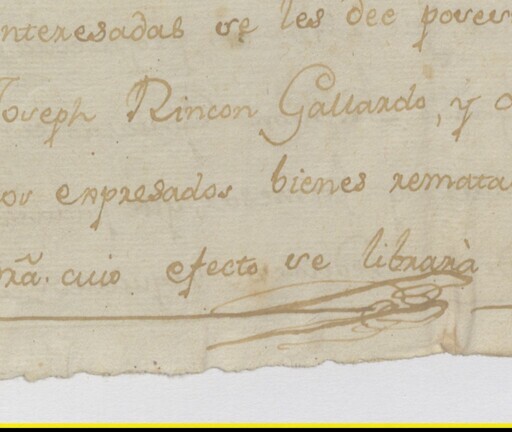 interesadas se les dee poses
Joseph Rincon Gallardo, y
os expresados bienes remata
rã. cuio efecto se librarà